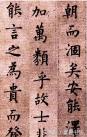 朝而涸矣安能深
加萬類乎故士非
能言之為貴而發